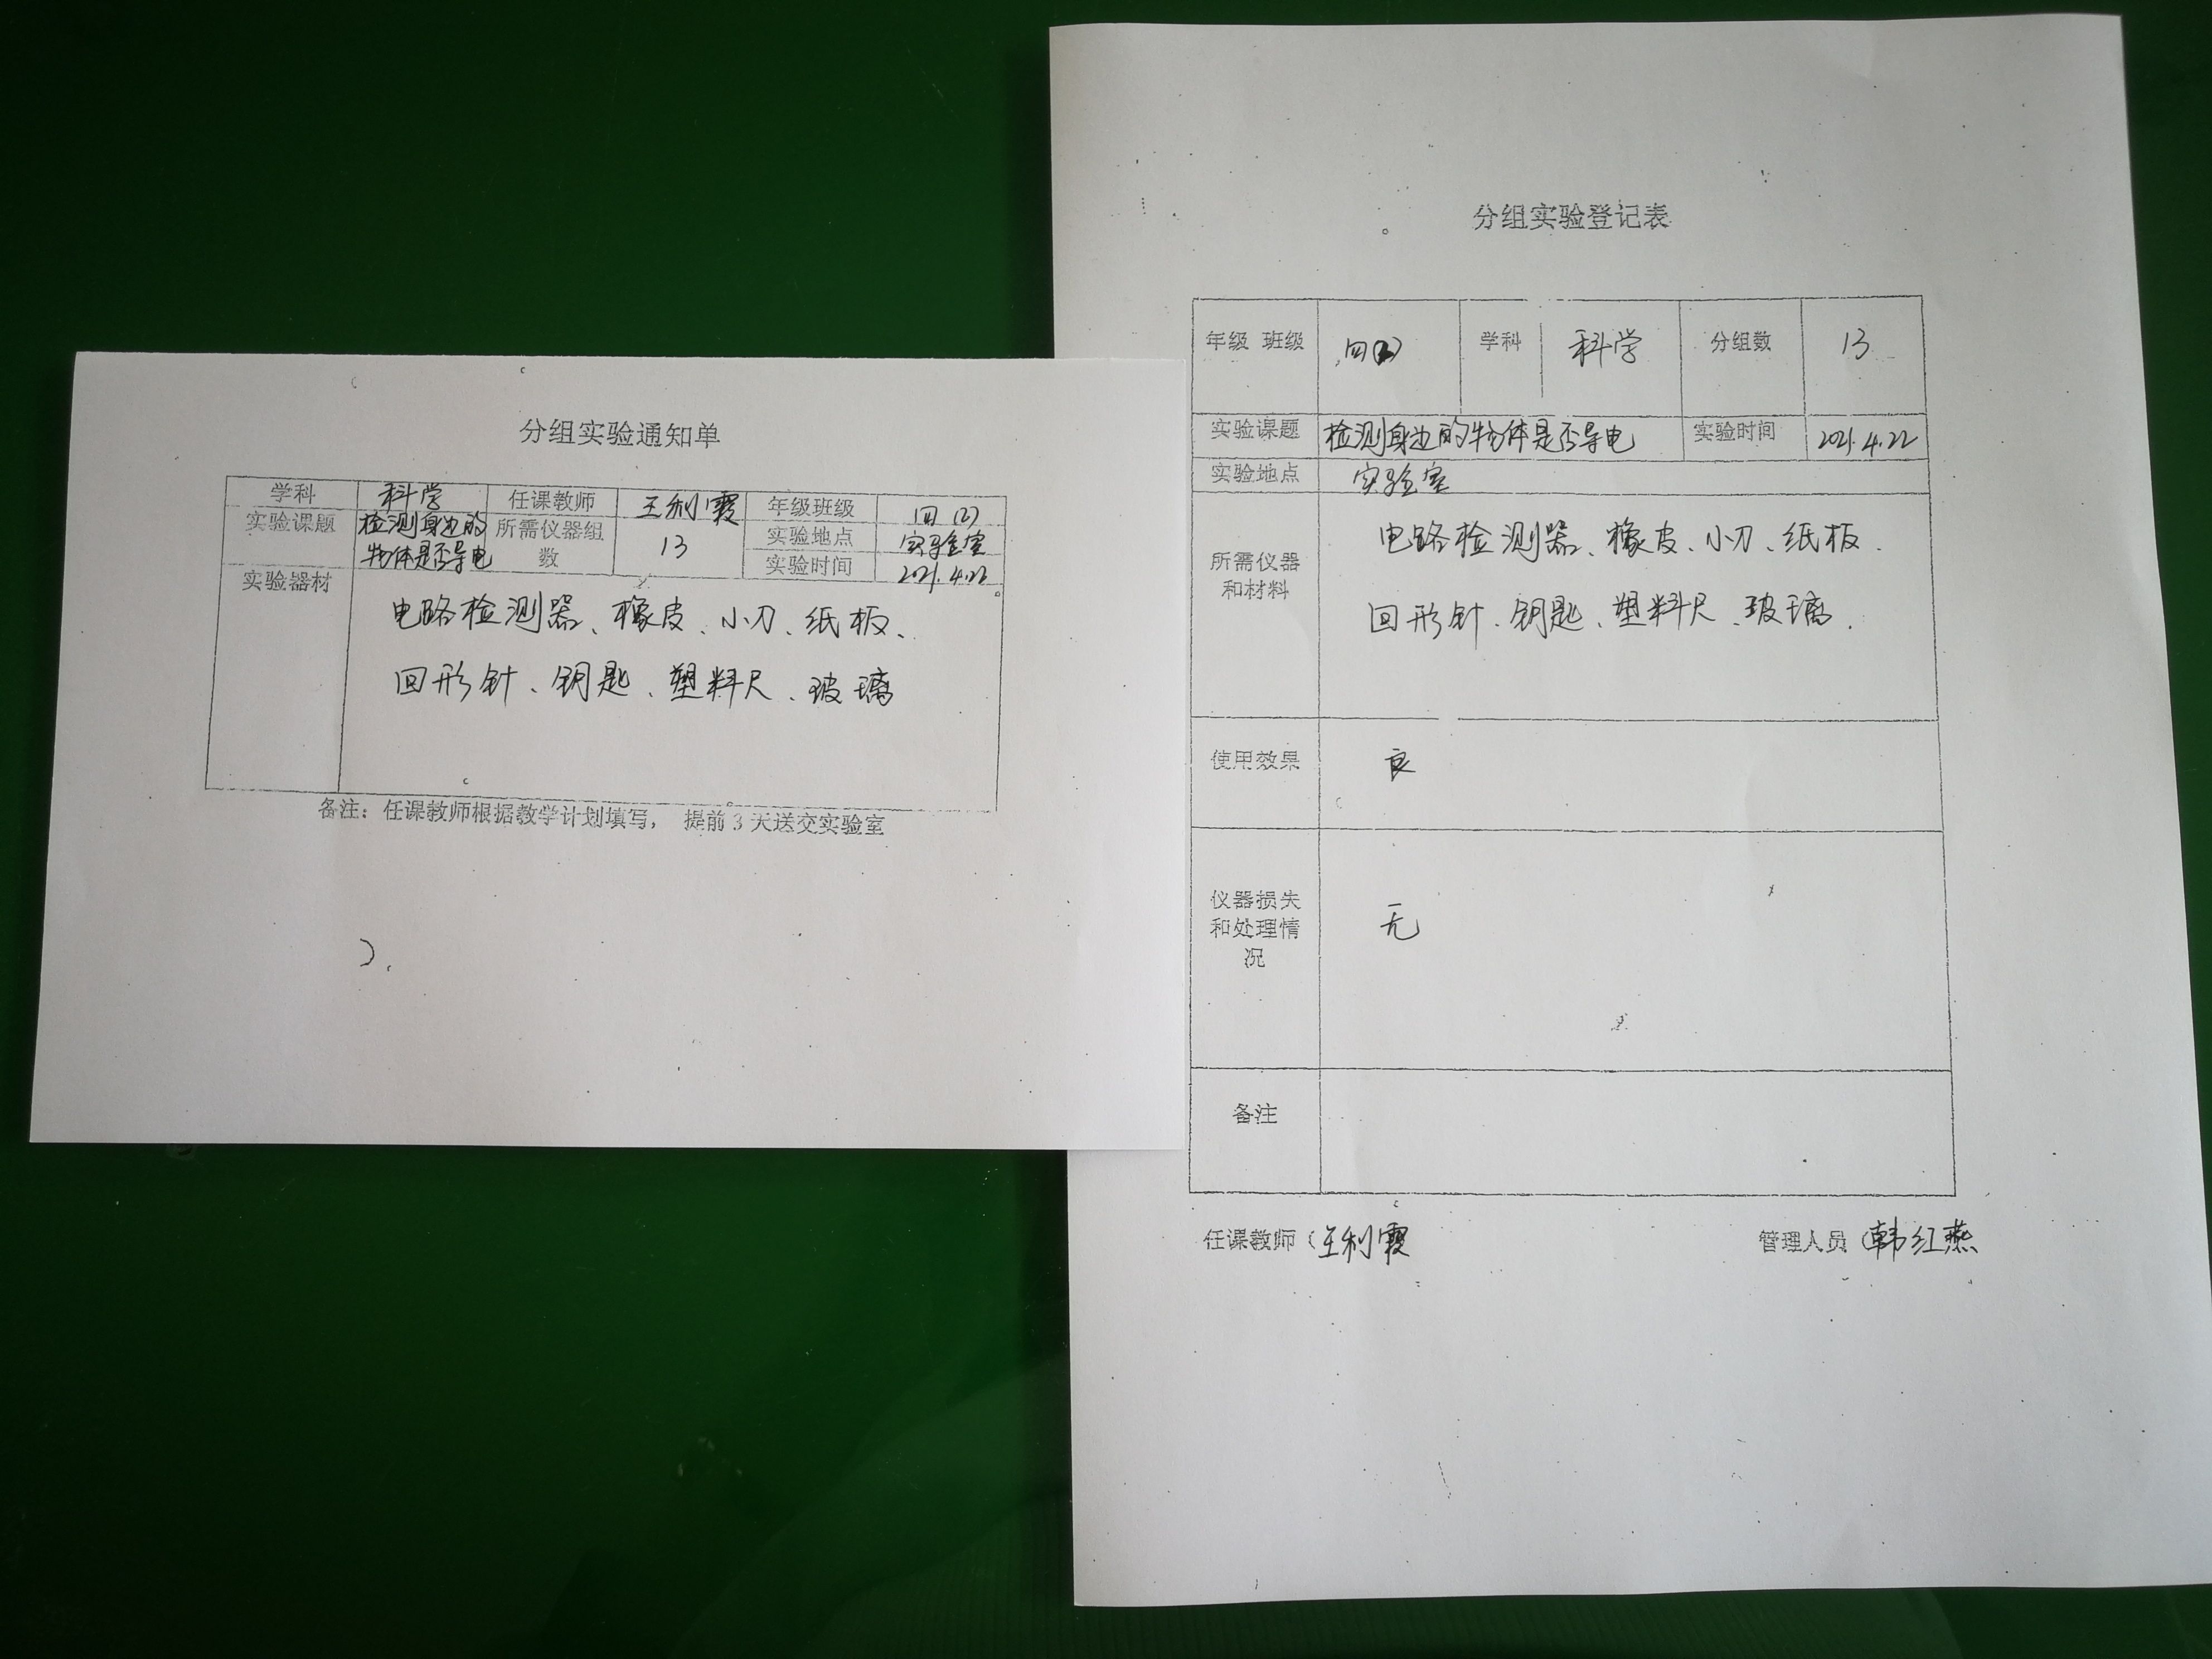 分组实验通知单
学科 科学 任课教师 王利霞 年级班级 四(2)
实验课题 检测身边的物体是否导电 所需仪器组数 13 实验地点 实验室
实验时间 2021.4.22
实验器材 电路检测器、橡皮、小刀、纸板、
回形针、钥匙、塑料尺、玻璃
备注：任课教师根据教学计划填写， 提前3天送交实验室
分组实验登记表
年级 班级 四(2) 学科 科学 分组数 13
实验课题 检测身边的物体是否导电 实验时间 2021.4.22
实验地点 实验室
所需仪器和材料 电路检测器、橡皮、小刀、纸板、
回形针、钥匙、塑料尺、玻璃.
使用效果 良
仪器损失和处理情况 无
备注
任课教师（王利霞 管理人员（韩红燕